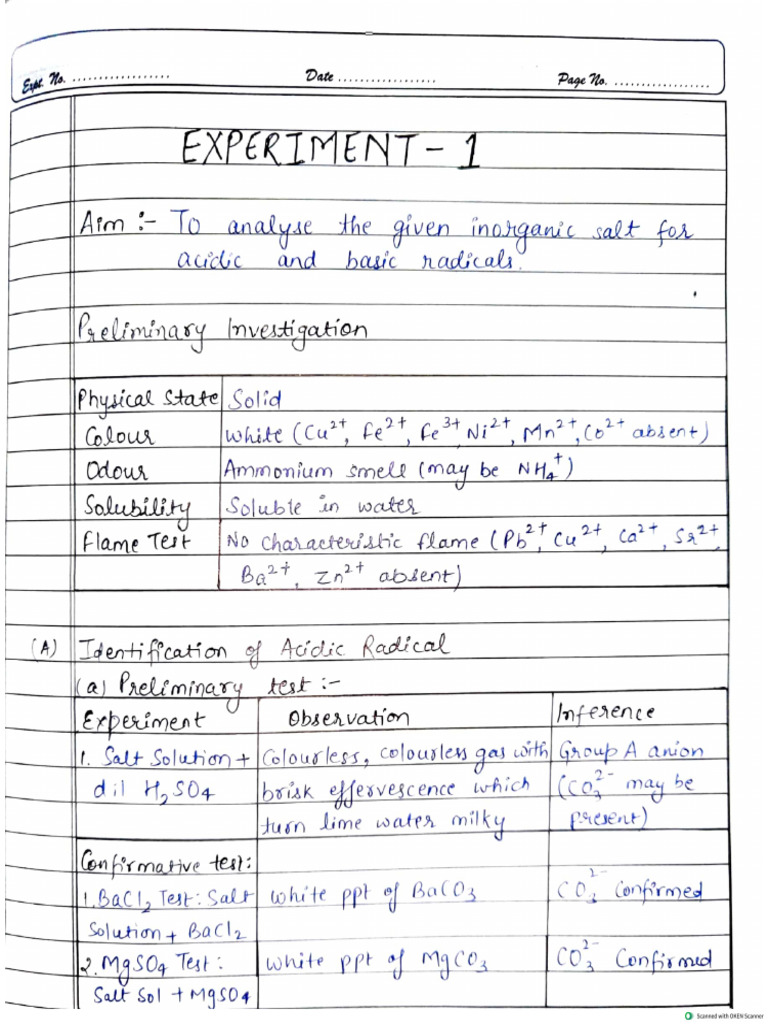 Expt. No. .................. Date .................. Page No. ..................
EXPERIMENT - 1
Aim :- To analyse the given inorganic salt for
acidic and basic radicals.
Preliminary Investigation
Physical State Solid
Colour White (Cu²⁺, Fe²⁺, Fe³⁺, Ni²⁺, Mn²⁺, Co²⁺ absent)
Odour Ammonium smell (may be NH₄⁺)
Solubility Soluble in water
Flame Test No characteristic flame (Pb²⁺, Cu²⁺, Ca²⁺, Sr²⁺,
Ba²⁺, Zn²⁺ absent)
(A) Identification of Acidic Radical
(a) Preliminary test :-
Experiment Observation Inference
1. Salt Solution + Colourless, colourless gas with Group A anion
dil H₂SO₄ brisk effervescence which (CO₃²⁻ may be
turn lime water milky present)
Confirmative test:
1. BaCl₂ Test: Salt white ppt of BaCO₃ CO₃²⁻ Confirmed
Solution + BaCl₂
2. MgSO₄ Test: white ppt of MgCO₃ CO₃²⁻ Confirmed
Salt Sol + MgSO₄
Scanned with OKEN Scanner